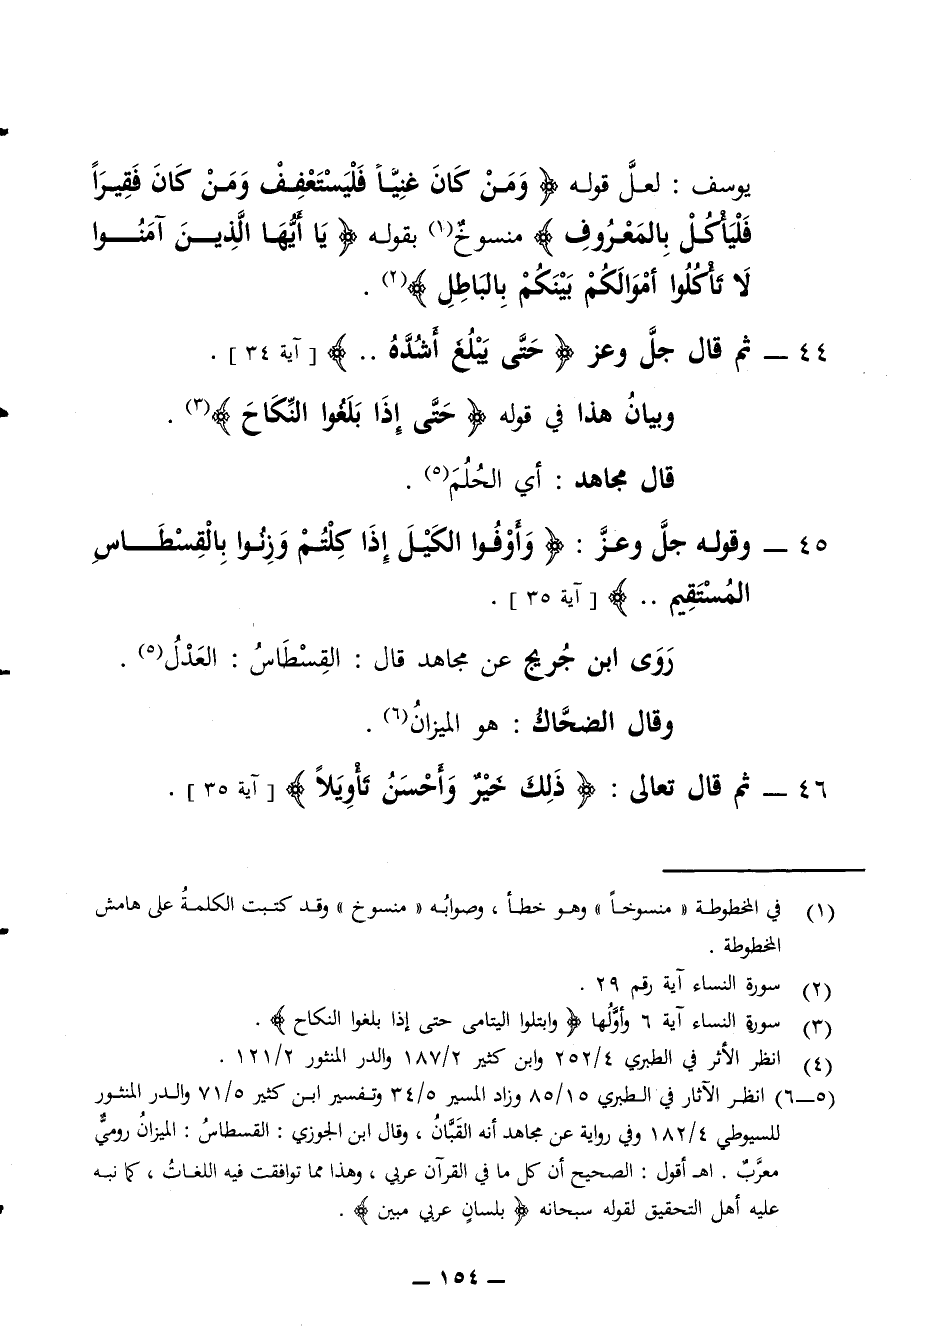 يوسف : لعلَّ قوله ﴿ وَمَنْ كَانَ غَنِيَّاً فَلْيَسْتَعْفِفْ وَمَنْ كَانَ فَقِيرَاً
فَلْيَأْكُلْ بِالمَعْرُوفِ ﴾ منسوخٌ(١) بقوله ﴿ يَا أَيُّهَا الَّذِينَ آمَنُوا
لَا تَأْكُلُوا أمْوَالَكُمْ بَيْنَكُمْ بِالبَاطِلِ ﴾(٢) .
٤٤ ــ ثم قال جلَّ وعز ﴿ حَتَّى يَبْلُغَ أَشُدَّهُ .. ﴾ [ آية ٣٤ ] .
وبيانُ هذا في قوله ﴿ حَتَّى إِذَا بَلَغُوا النِّكَاحَ ﴾(٣) .
قال مجاهد : أي الحُلُمَ(٥) .
٤٥ ــ وقوله جلَّ وعزَّ : ﴿ وَأَوْفُوا الكَيْلَ إِذَا كِلْتُمْ وَزِنُوا بِالْقِسْطَاسِ
المُسْتَقِيمِ .. ﴾ [ آية ٣٥ ] .
رَوَى ابن جُريج عن مجاهد قال : القِسْطَاسُ : العَدْلُ(٥) .
وقال الضحَّاكُ : هو الميزانُ(٦) .
٤٦ ــ ثم قال تعالى : ﴿ ذَلِكَ خَيْرٌ وَأَحْسَنُ تَأْوِيَلاً ﴾ [ آية ٣٥ ] .
(١) في المخطوطة « منسوخاً » وهو خطأ ، وصوابُه « منسوخ » وقد كتبت الكلمةُ على هامش
المخطوطة .
(٢) سورة النساء آية رقم ٢٩ .
(٣) سورة النساء آية ٦ وأوَّلُها ﴿ وابتلوا اليتامى حتى إذا بلغوا النكاح ﴾ .
(٤) انظر الأثر في الطبري ٢٥٢/٤ وابن كثير ١٨٧/٢ والدر المنثور ١٢١/٢ .
(٥ــ٦) انظر الآثار في الطبري ٨٥/١٥ وزاد المسير ٣٤/٥ وتفسير ابن كثير ٧١/٥ والدر المنثور
للسيوطي ١٨٢/٤ وفي رواية عن مجاهد أنه القَبَّانُ ، وقال ابن الجوزي : القسطاسُ : الميزانُ روميٌّ
معرَّبٌ . اهـ أقول : الصحيح أن كل ما في القرآن عربي ، وهذا مما توافقت فيه اللغاتُ ، كما نبه
عليه أهل التحقيق لقوله سبحانه ﴿ بلسانٍ عربي مبين ﴾ .
ــ ١٥٤ ــ